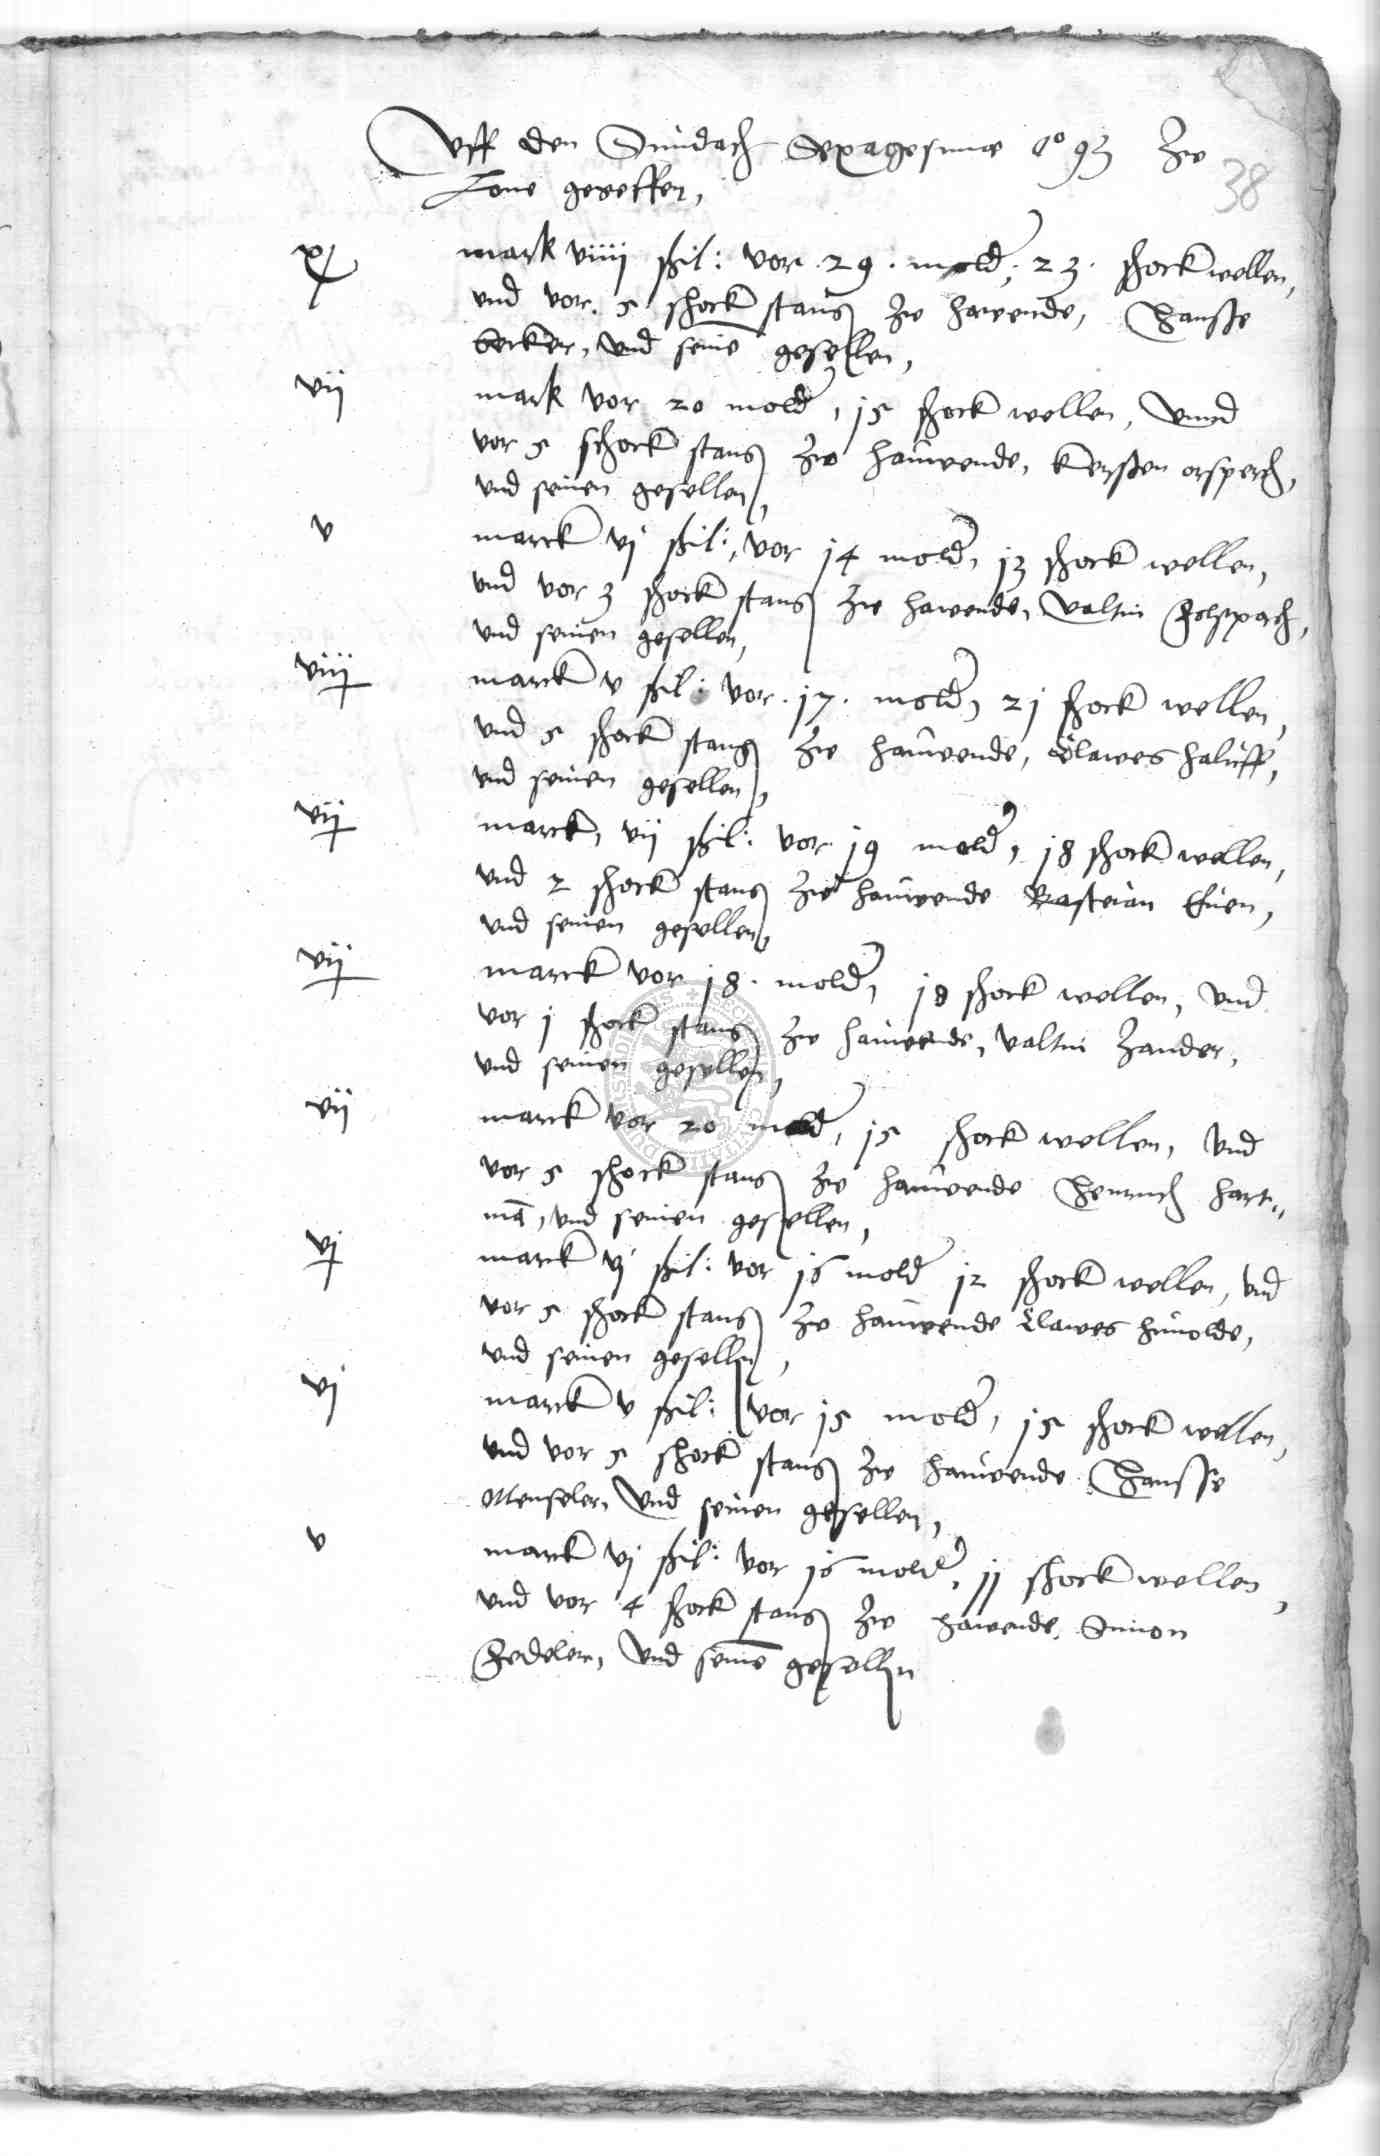 Vff den Sundach Sexagesime Ao 93 Zw
Lone gereffen,
38
xj mark viiij ßil: vor .29. mold, 23. shock wellen,
vnd vor. 5 shock stang Zw hawende, Hanße
becker, vnd seine gesellen,
vij mark vor 20 mold, 15 shock wellen, Vnnd
vor 5 schock stang Zw hauwende, kerßten orsperch,
vnd seinen gesellen,
v marck vj ßil:, vor 14 mold, 13 shock wellen,
vnd vor 3 shock stang Zw hawende, Valtin
vnd seinen gesellen,
viij marck v ßil: vor .17. mold, 21 shock wellen,
vnd 5 shock stang Zw hauwende, Clawes haluff,
vnd seinen gesellen,
vij marck, vij ßil: vor 19 mold, 18 shock wellen,
vnd 2 shock stang Zw hauwende Basteian
vnd seinen gesellen,
vij marck vor 18. mold, 18 shock wellen, Vnd
vor 1 shock stang Zw hauwende, valtin Zander,
vnd seinen gesellen,
vij marck vor 20 mold, 15 shock wellen, Vnd
vor 5 shock stang Zw hauwende Henrich hart„
mā, vnd seinen gesellen,
vj marck vj ßil: vor 16 mold 12 shock wellen, vnd
vor 5 shock stang Zw hauwende Clawes hunolde,
vnd seinen gesellen,
vj marck v ßil: vor 15 mold, 15 shock wellen,
vnd vor 5 shock stang Zw hauwende Hansse
Ottenseler, Vnd seinen gesellen,
v marck vj ßil: vor 16 mold, 11 shock wellen,
vnd vor 4 shock stang Zw hawende, Simon
Fedeler, Vnd seinē gesellen